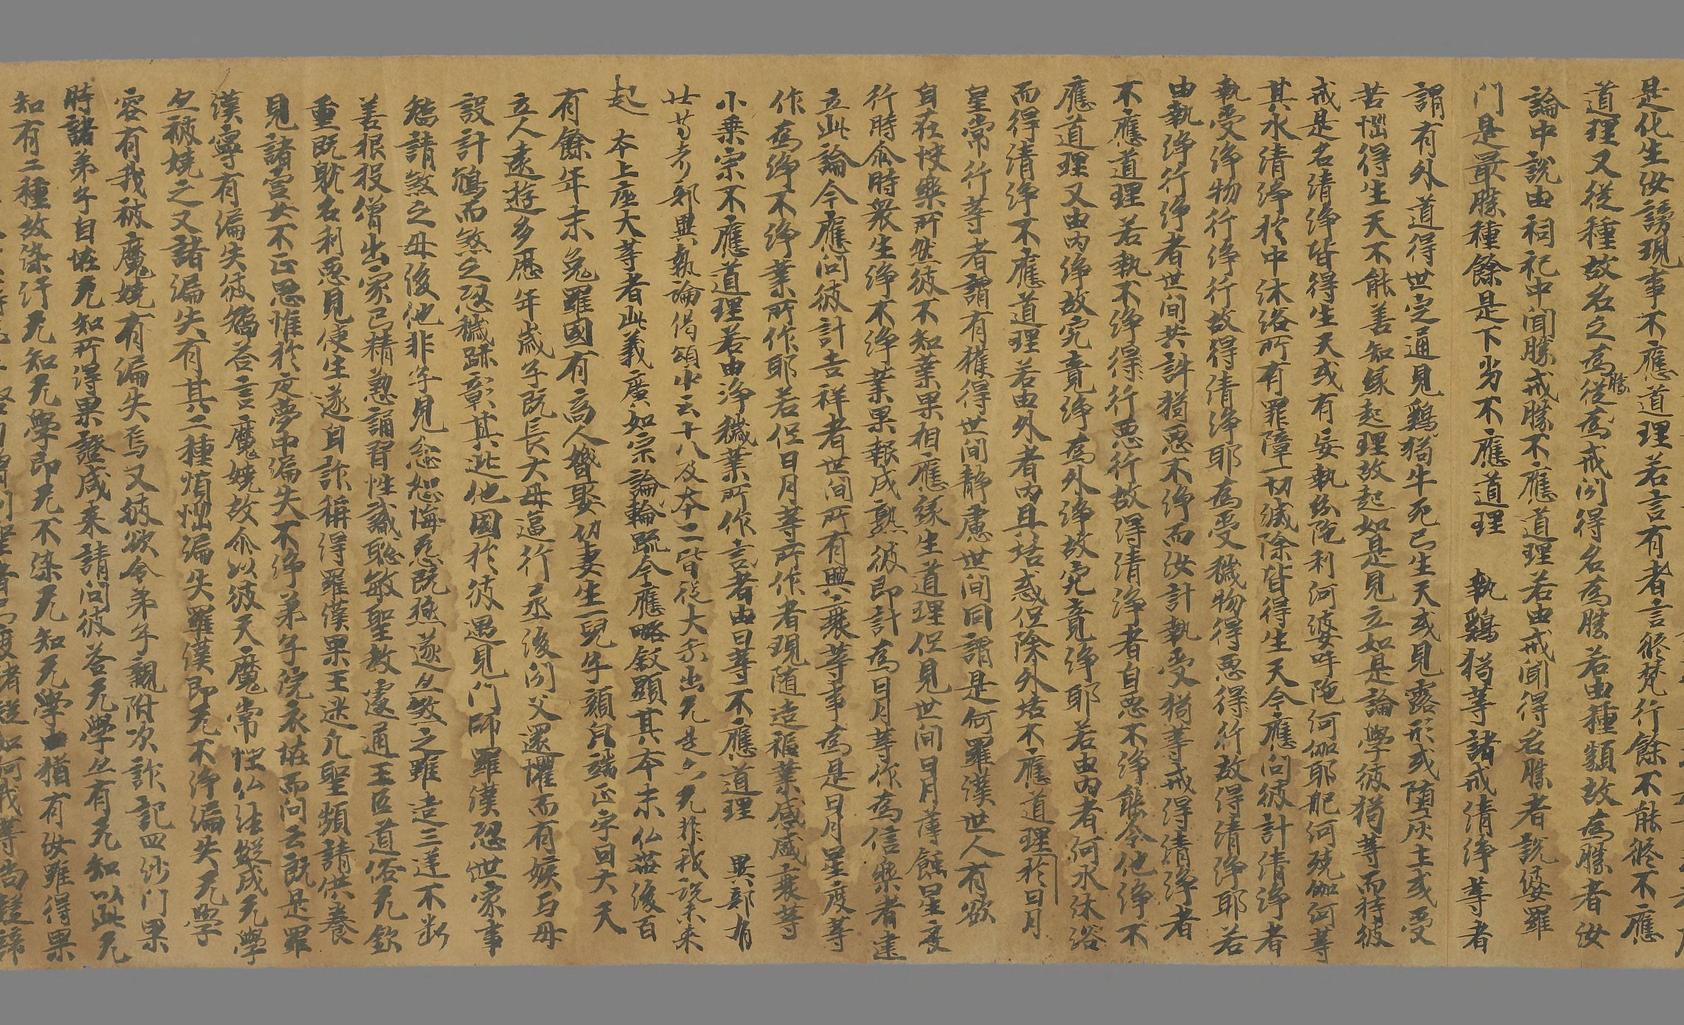 是化生汝謗現事不應道理若言有者言修梵行餘不能修不應
道理又從種故名之為勝從為戒例得名為勝若由種類故為勝者汝
論中說由祠祀中聞勝戒勝不應道理若由戒聞得名勝者說婆羅
門是最勝種餘是下劣不應道理 執鷄猗等諸戒清淨等者
謂有外道得世定通見鷄猗牛死已生天或見露形或墮灰土或受
苦惱得生天不能善知緣起理故起如是見立如是論學彼猗等而持彼
戒是名清淨皆得生天或有妄執紛陀利河婆呼陀河伽耶河殑伽河等
其水清淨於中沐浴所有罪障一切滅除皆得生天今應問彼計清淨者
執受淨物行淨行故得清淨耶為受穢物得惡得行故得清淨耶若
由執淨行淨者世間共許猗惡不淨而汝計執受猗等戒得清淨者
不應道理若執不淨得行惡行故得清淨者自惡不淨能令他淨不
應道理又由內淨故究竟淨為外淨故究竟淨耶若由內者何水沐浴
而得清淨不應道理若由外者內具垢惑但除外垢不應道理於日月
星常行等者謂有獲得世間靜慮世間同謂是何羅漢世人有欲
自在快樂所然彼不知業果相應緣生道理但見世間日月薄蝕星度
行時尒時衆生淨不淨業果報成熟彼即計為日月等作為信樂者建
立此論今應問彼計吉祥者世間所有興衰等事為是日月星度等
作為淨不淨業所作耶若但日月等所作者現隨造福業感盛衰等
小乘宗不應道理若由淨穢業所作言者由日等不應道理 異部有
廿等者部異執論偈頌此云十八及本二皆從大衆出无是亦无非我說未來
起 本上座大等者此義廣如宗論輪疏今應略敘顯其本末仏茲後百
有餘年末兔羅國有商人㜝娶幼妻生一兒子顏皃端正字曰大天
立人遠遊多歷年歲子既長大母逼行烝後例父還懼而有娭与母
設計鴆而煞之恐穢跡彰其逃他國於彼遇見門師羅漢恐世家事
矯請煞之母後他非子見忿恕悔惡既極遂煞之雖造三逆不斷
善根投僧出家已精懃誦習性識聡敏聖教遂通王臣道俗无欽
重既躭名利惡見便生遂自詐稱得羅漢果王迷凢聖頻請供養
見諸宮女不正思惟於夜夢中漏失不淨弟子浣衣垢而問云既是羅
漢寧有漏失彼矯荅言魔嬈故尒以彼天魔常惱仏法縱成无學
亦被嬈之又諸漏失有其二種煩惱漏失羅漢即无不淨漏失无學
容有我被魔嬈有漏失焉又彼欲令弟子親附次詐記四沙門果
時諸弟子自垢无知所得果證咸來請問彼荅无學亦有无知以此无
知有二種故染汙无知无學即无不染无知无學猶有汝雖得果